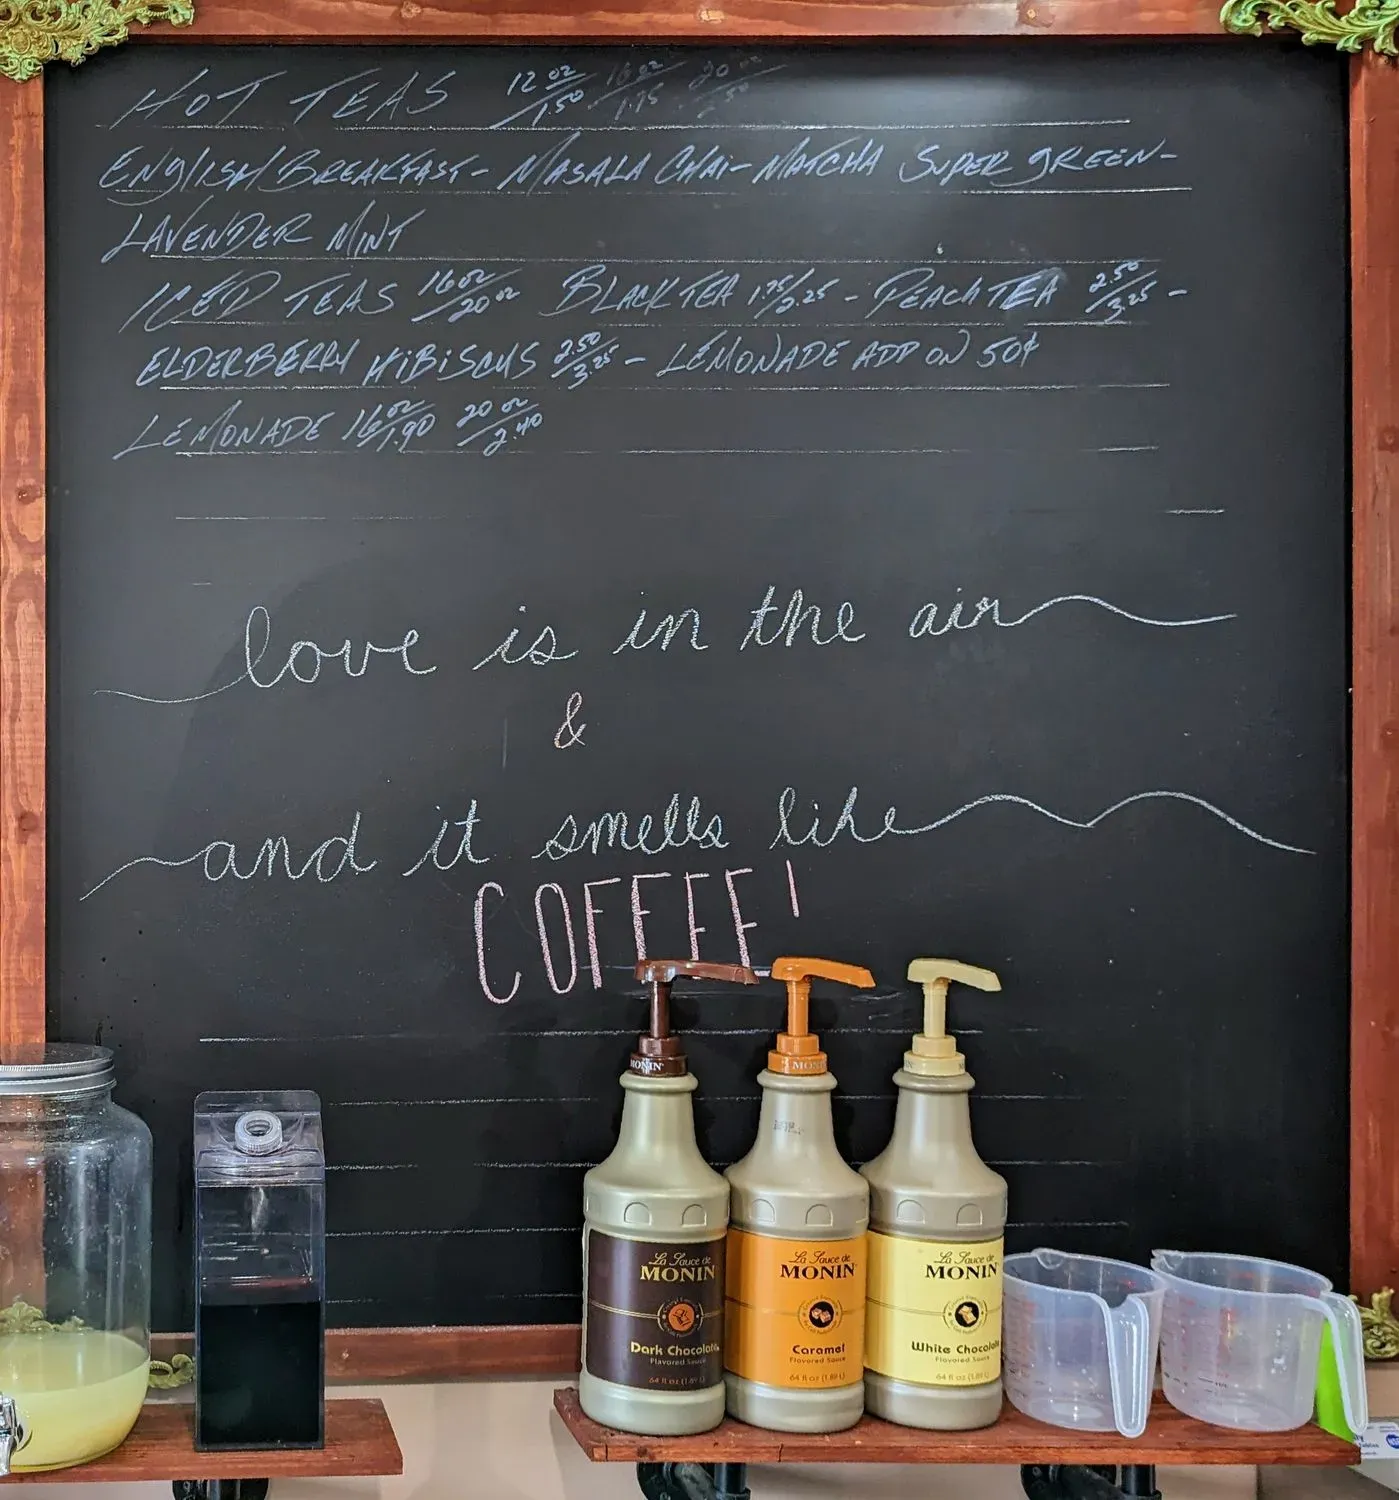 HOT TEAS 12 oz/1.50 16 oz/1.75 20 oz/2.50
ENGLISH BREAKFAST - MASALA CHAI - MATCHA SUPER GREEN -
LAVENDER MINT
ICED TEAS 16 oz/20 oz BLACK TEA 1.75/2.25 - PEACH TEA 2.50/3.25 -
ELDERBERRY HIBISCUS 2.50/3.25 - LEMONADE ADD ON 50¢
LEMONADE 16 oz/1.90 20 oz/2.40
love is in the air
&
and it smells like
COFFEE!
MONIN
MONIN
La Sauce de
MONIN
Dark Chocolate
Flavored Sauce
64 fl oz (1.89 L)
La Sauce de
MONIN
Caramel
Flavored Sauce
64 fl oz (1.89 L)
La Sauce de
MONIN
White Chocolate
Flavored Sauce
64 fl oz (1.89 L)